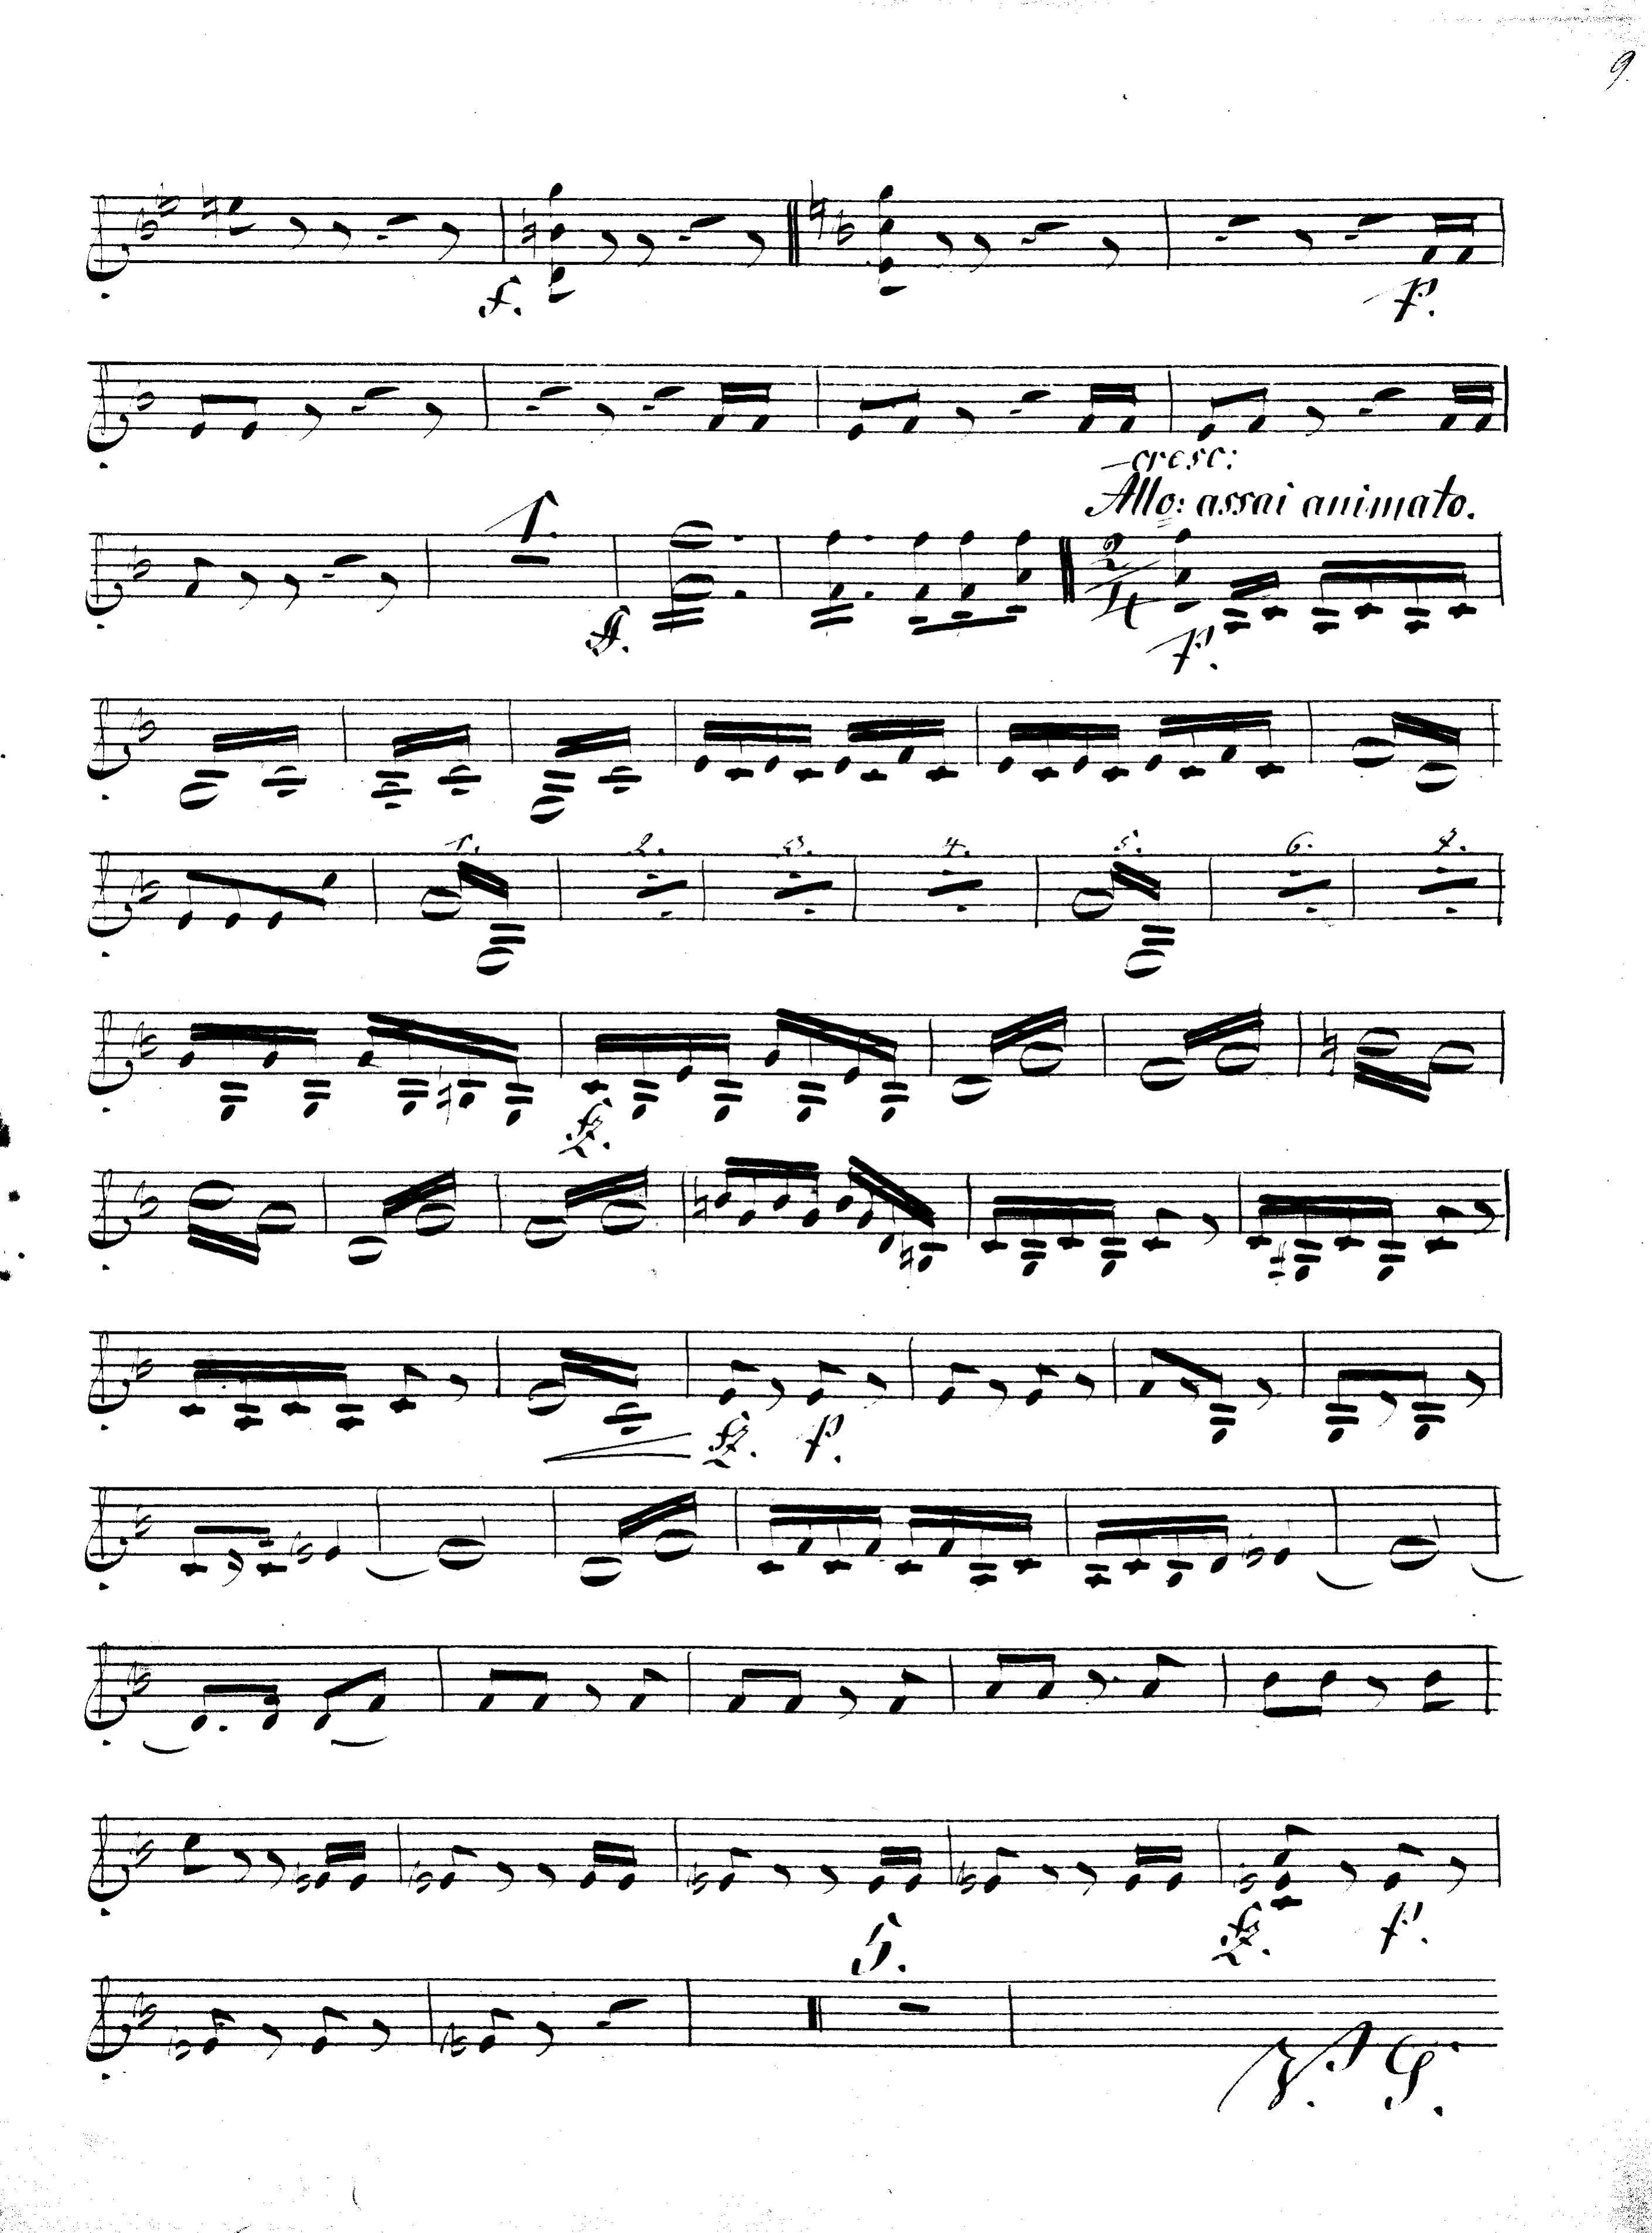 9.
f. p.
cresc:
Allo: assai animato.
1.
ff. 2/4 p.
1. 2. 3. 4. 5. 6. 7.
fz.
fz. p.
5. fz. p.
V. S.